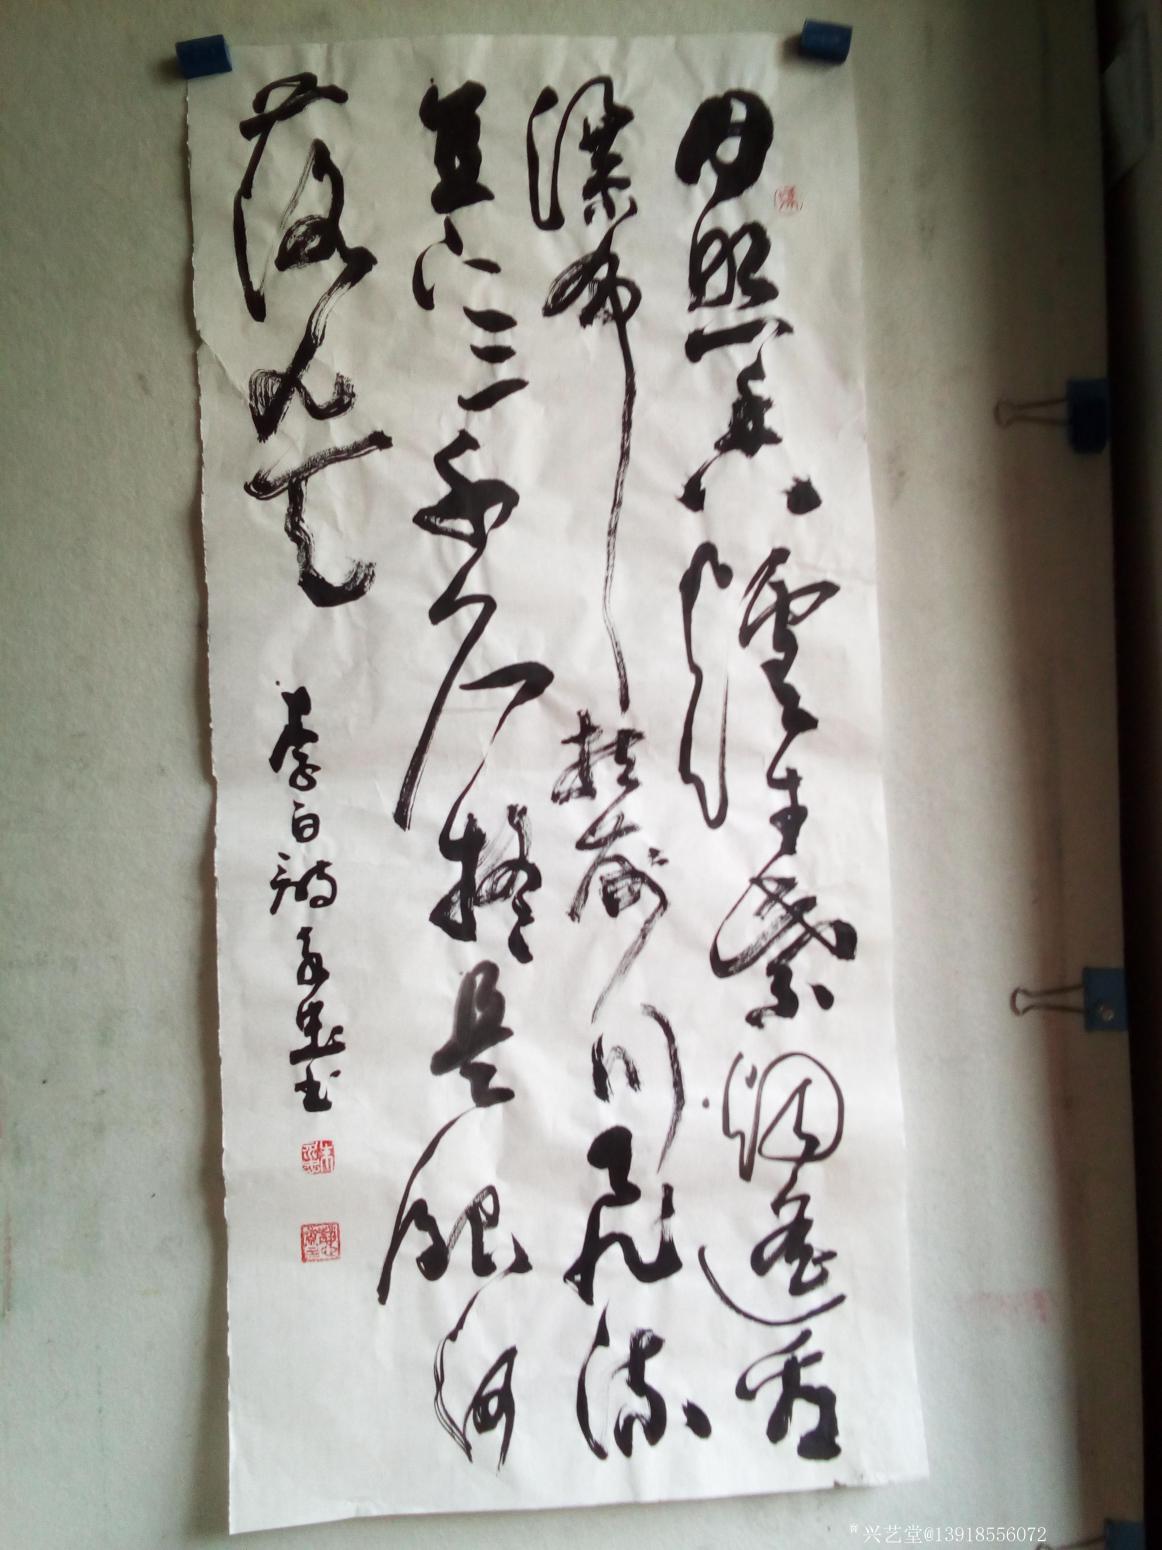 日照香炉生紫烟遥看
瀑布挂前川飞流
直下三千尺疑是银河
落九天
李白诗
书
兴艺堂@13918556072